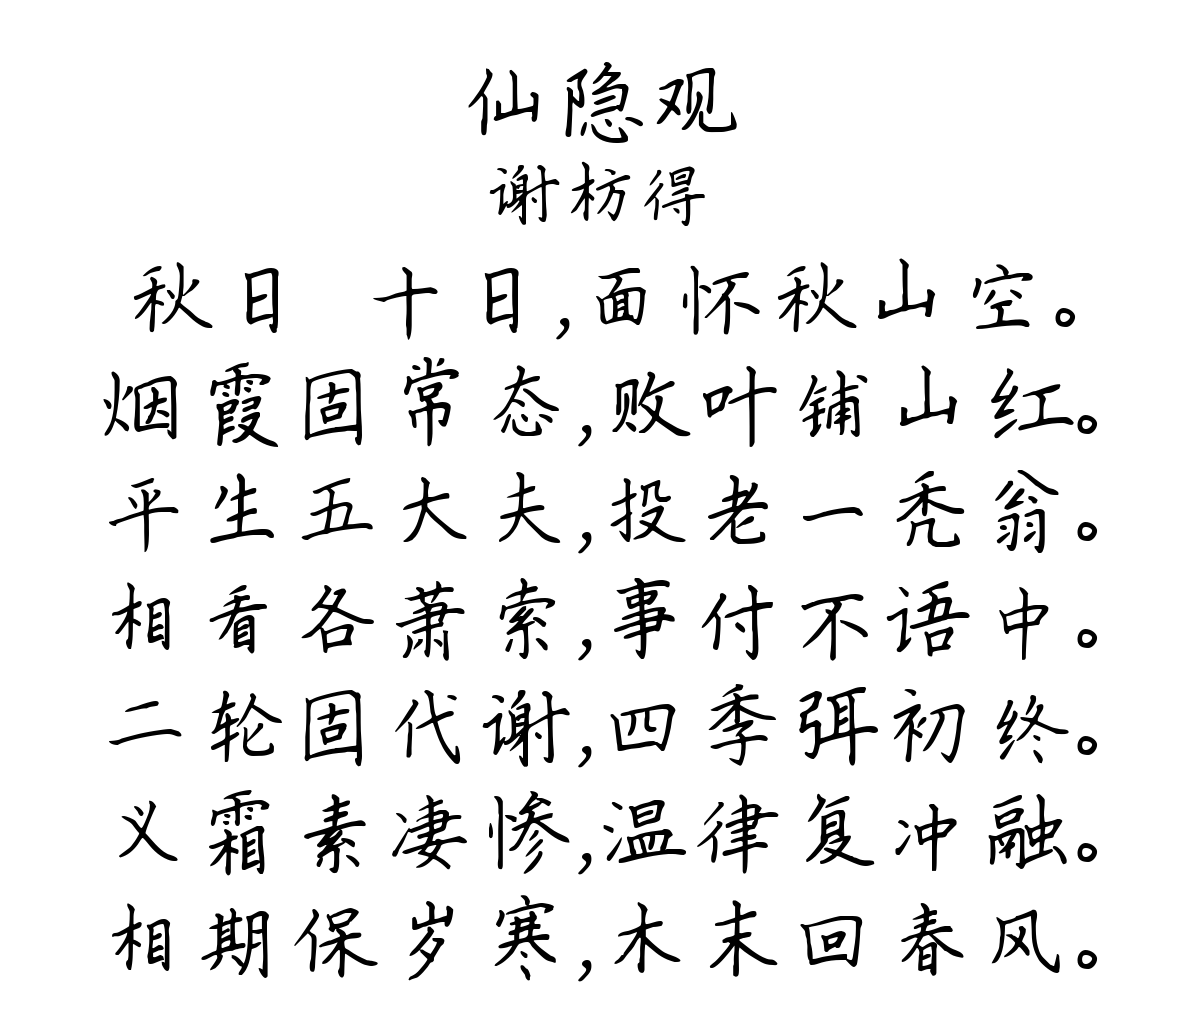 仙隐观
谢枋得
秋日 十日,面怀秋山空。
烟霞固常态,败叶铺山红。
平生五大夫,投老一秃翁。
相看各萧索,事付不语中。
二轮固代谢,四季弭初终。
义霜素凄惨,温律复冲融。
相期保岁寒,木末回春风。